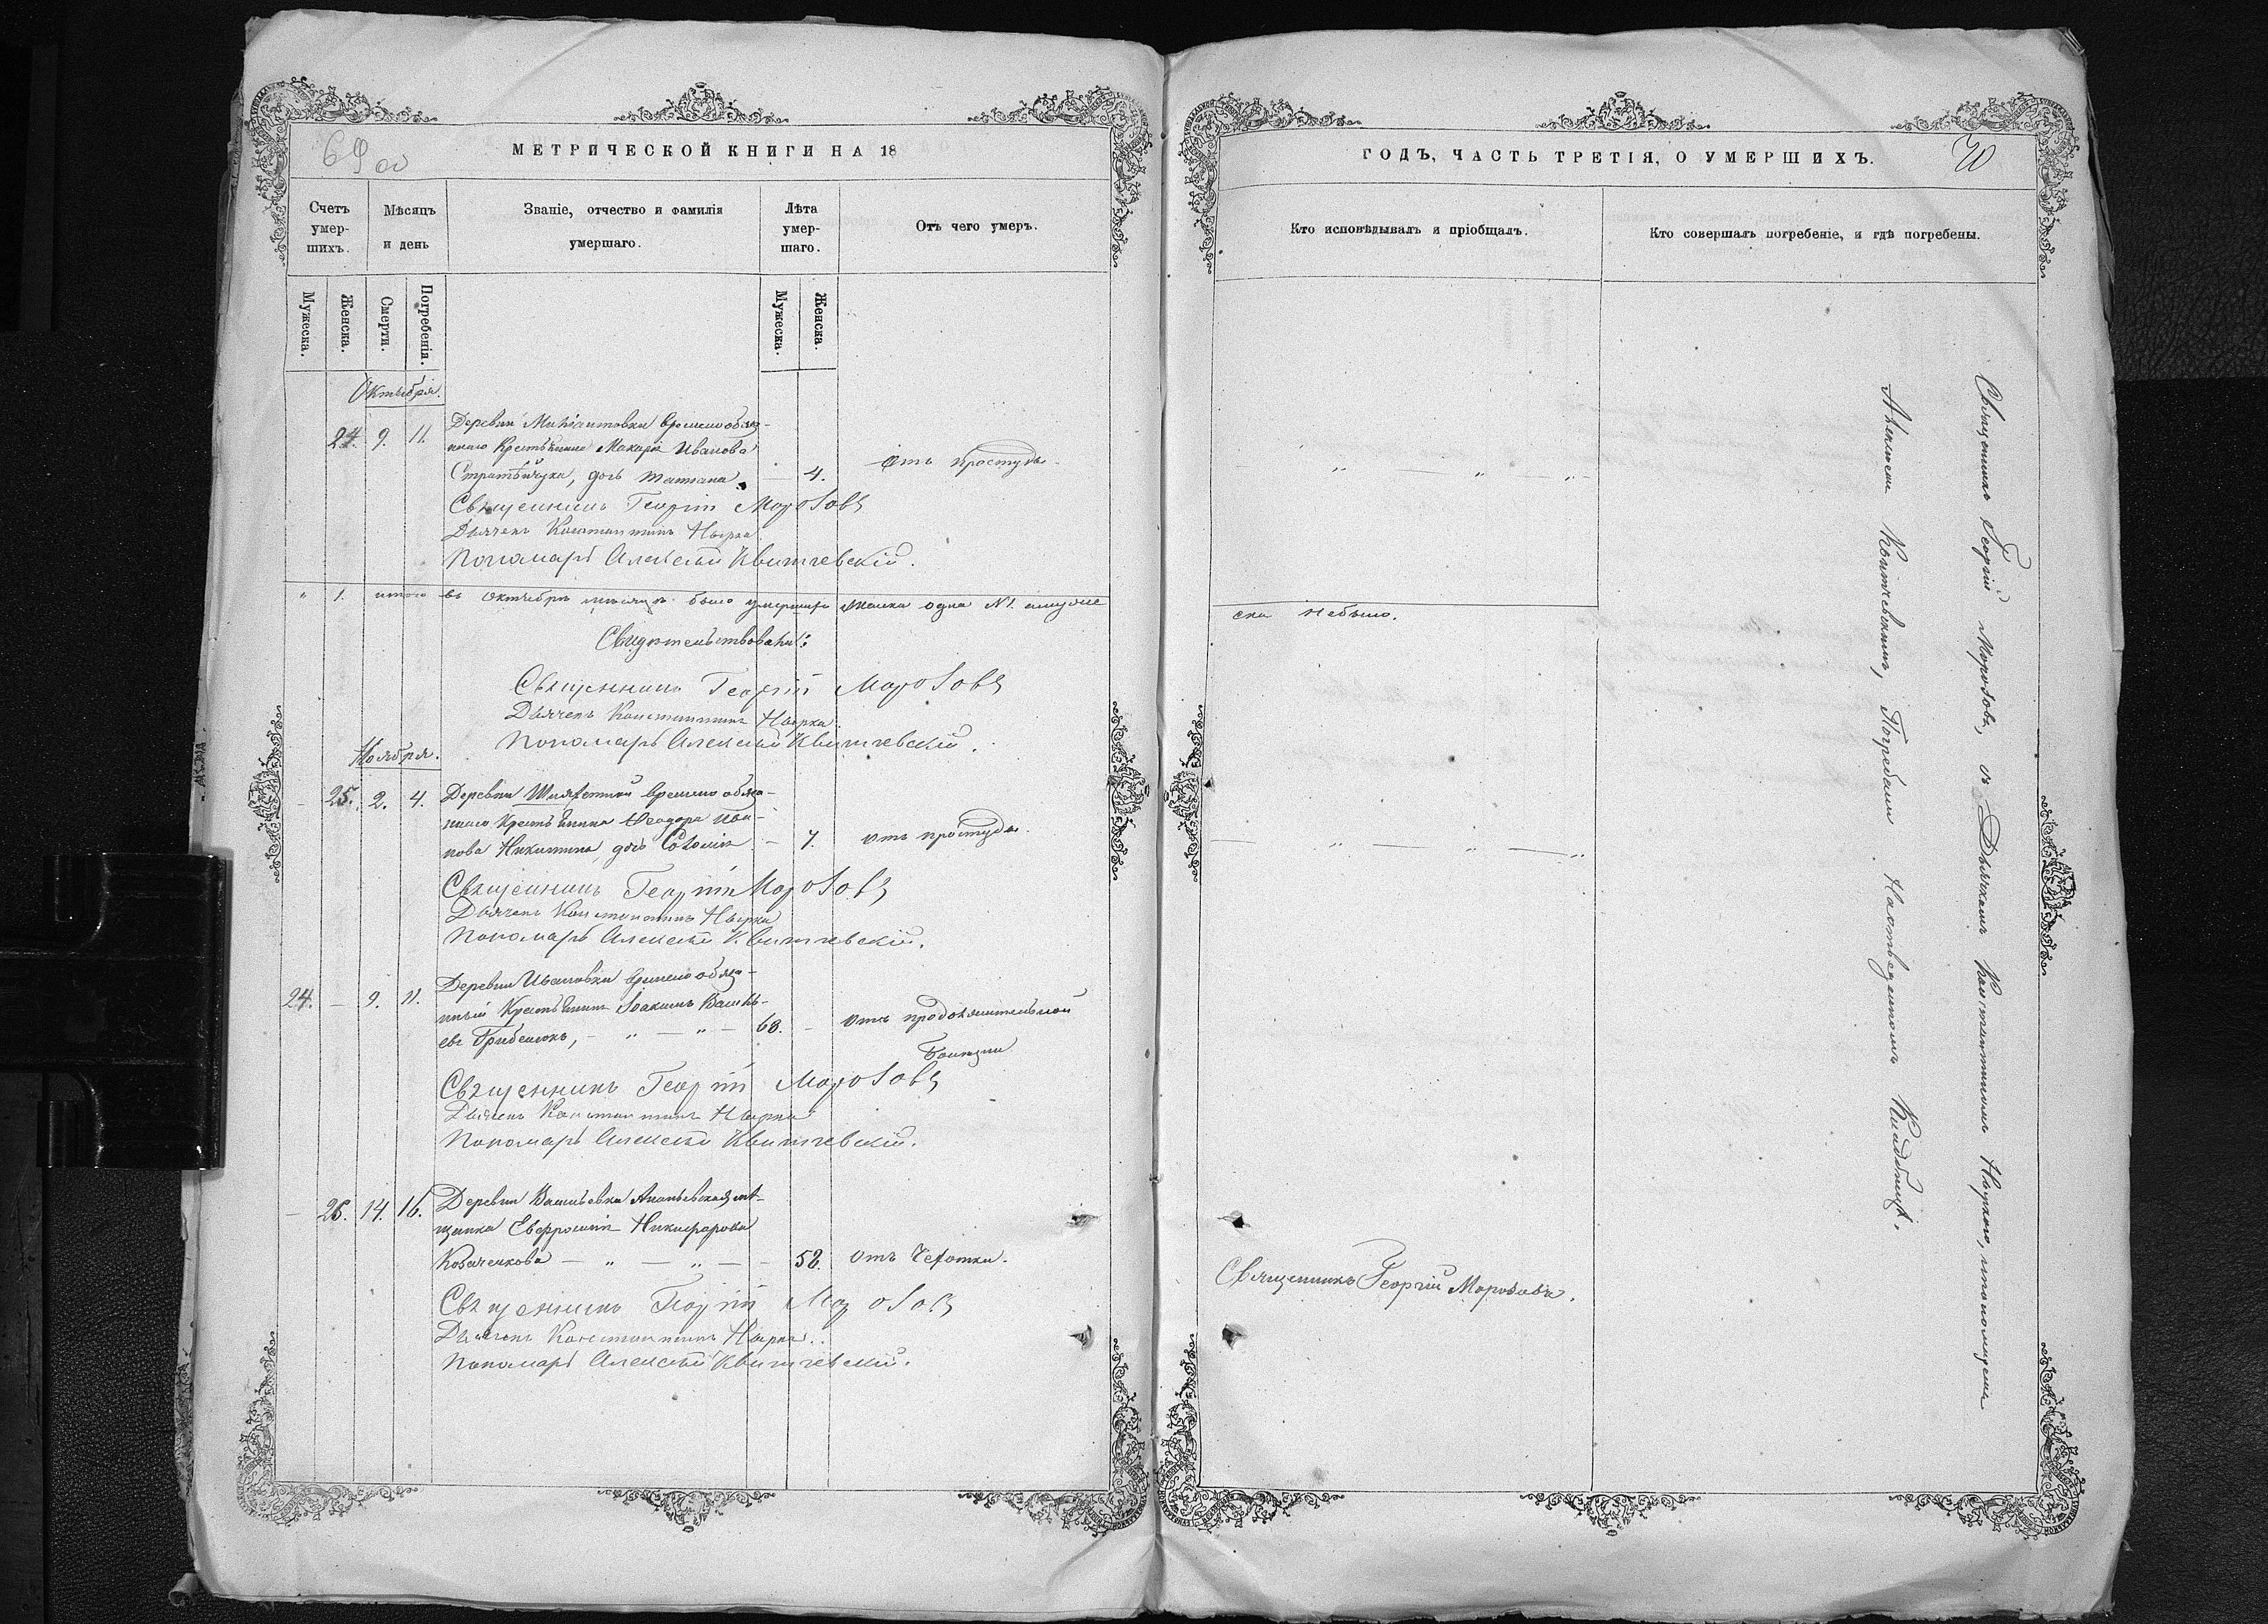 69 об
МЕТРИЧЕСКОЙ КНИГИ НА 18
Счетъ умер-шихъ.
Мѣсяцъ и день
Званіе, отчество и фамилія умершаго.
Лѣта умер-шаго.
Отъ чего умеръ.
Мужеска.
Женска.
Смерти.
Погребенія.
Мужеска.
Женска.
Октября.
24. 9. 11. Деревни временообяз-
наго Крестьянина Макарія Иванова
дочь Татіана. — 4. Отъ простуды.
Священникъ Георгій Морозовъ
Дьячекъ Константинъ Нырка
Пономарь Алексѣй Квитчевскій.
" 1. итого въ Октябрѣ мѣсяцѣ было умерших женска одна №1. а муже
Свидѣтельствовали:
Священникъ Георгій Морозовъ
Дьячекъ Константинъ Нырка
Пономарь Алексѣй Квитчевскій.
Ноября.
— 25. 2. 4. Деревни временообяза-
ннаго Крестьянина Ѳеодора Ива-
нова Никитина, дочь — 7. Отъ простуды.
Священникъ Георгій Морозовъ
Дьячекъ Константинъ Нырка
Пономарь Алексѣй Квитчевскій.
24. — 9. 11. Деревни Ивановки временообяза-
нный Крестьянинъ Іоакимъ Василь-
евъ — " — " — 68. — Отъ продолжительной
болѣзни
Священникъ Георгій Морозовъ
Дьячекъ Константинъ Нырка
Пономарь Алексѣй Квитчевскій.
— 26. 14. 16. Деревни Васильевки Ананьевская мѣ-
щанка Евфросинія Никифорова
Козаченкова — " — " — — 58. Отъ Чехотки.
Священникъ Георгій Морозовъ
Дьячекъ Константинъ Нырка.
Пономарь Алексѣй Квитчевскій.
ГОДЪ, ЧАСТЬ ТРЕТІЯ, О УМЕРШИХЪ.
70
Кто исповѣдывалъ и пріобщалъ.
Кто совершалъ погребеніе, и гдѣ погребены.
" — " — "
ска небыло.
— " — " — "
Священникъ Георгій Морозовъ.
Священникъ Георгій Морозовъ, съ Дьячкомъ Константиномъ Ныркою, и пономаремъ
Алексѣемъ Квитчевскимъ, Погребали На отведенномъ Кладбищѣ.